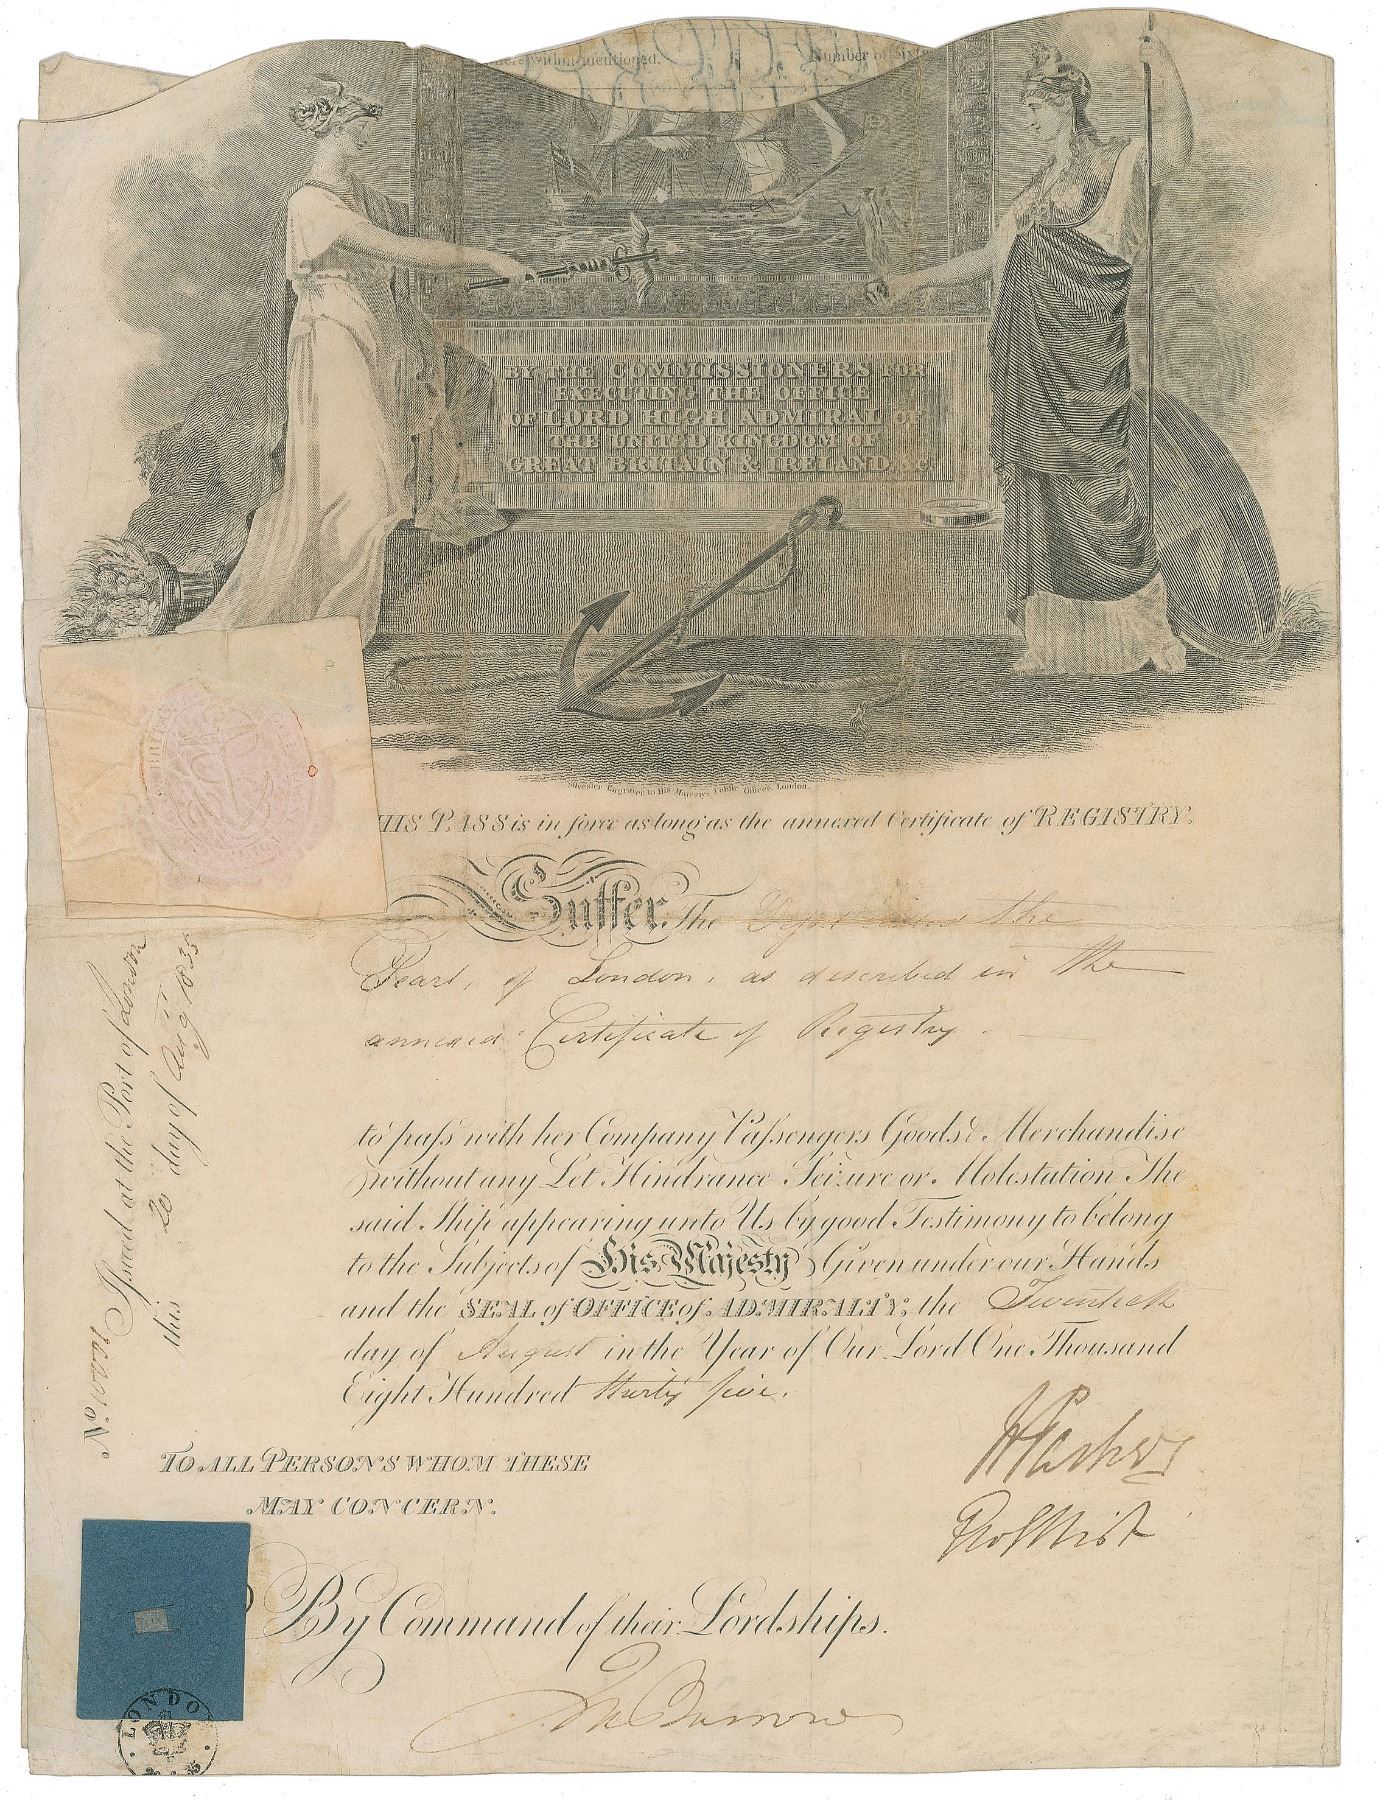 within mentioned.
Number of
BY THE COMMISSIONERS FOR
EXECUTING THE OFFICE
OF LORD HIGH ADMIRAL OF
THE UNITED KINGDOM OF
GREAT BRITAIN & IRELAND &c
Silvester Engraver to His Majestys Public Offices, London.
HIS PASS is in force as long as the annexed Certificate of REGISTRY.
Suffer The the
Pearl, of London, as described in the
annexed Certificate of Registry.
to pass with her Company Passengers Goods & Merchandise
without any Let Hindrance Seizure or Molestation The
said Ship appearing unto Us by good Testimony to belong
to the Subjects of His Majesty Given under our Hands
and the SEAL of OFFICE of ADMIRALTY, the Twentieth
day of August in the Year of Our Lord One Thousand
Eight Hundred thirty five.
Issued at the Port of London
this 20 day of Aug 1835
No.
TO ALL PERSONS WHOM THESE
MAY CONCERN.
By Command of their Lordships.
Jn Barrow
LONDO